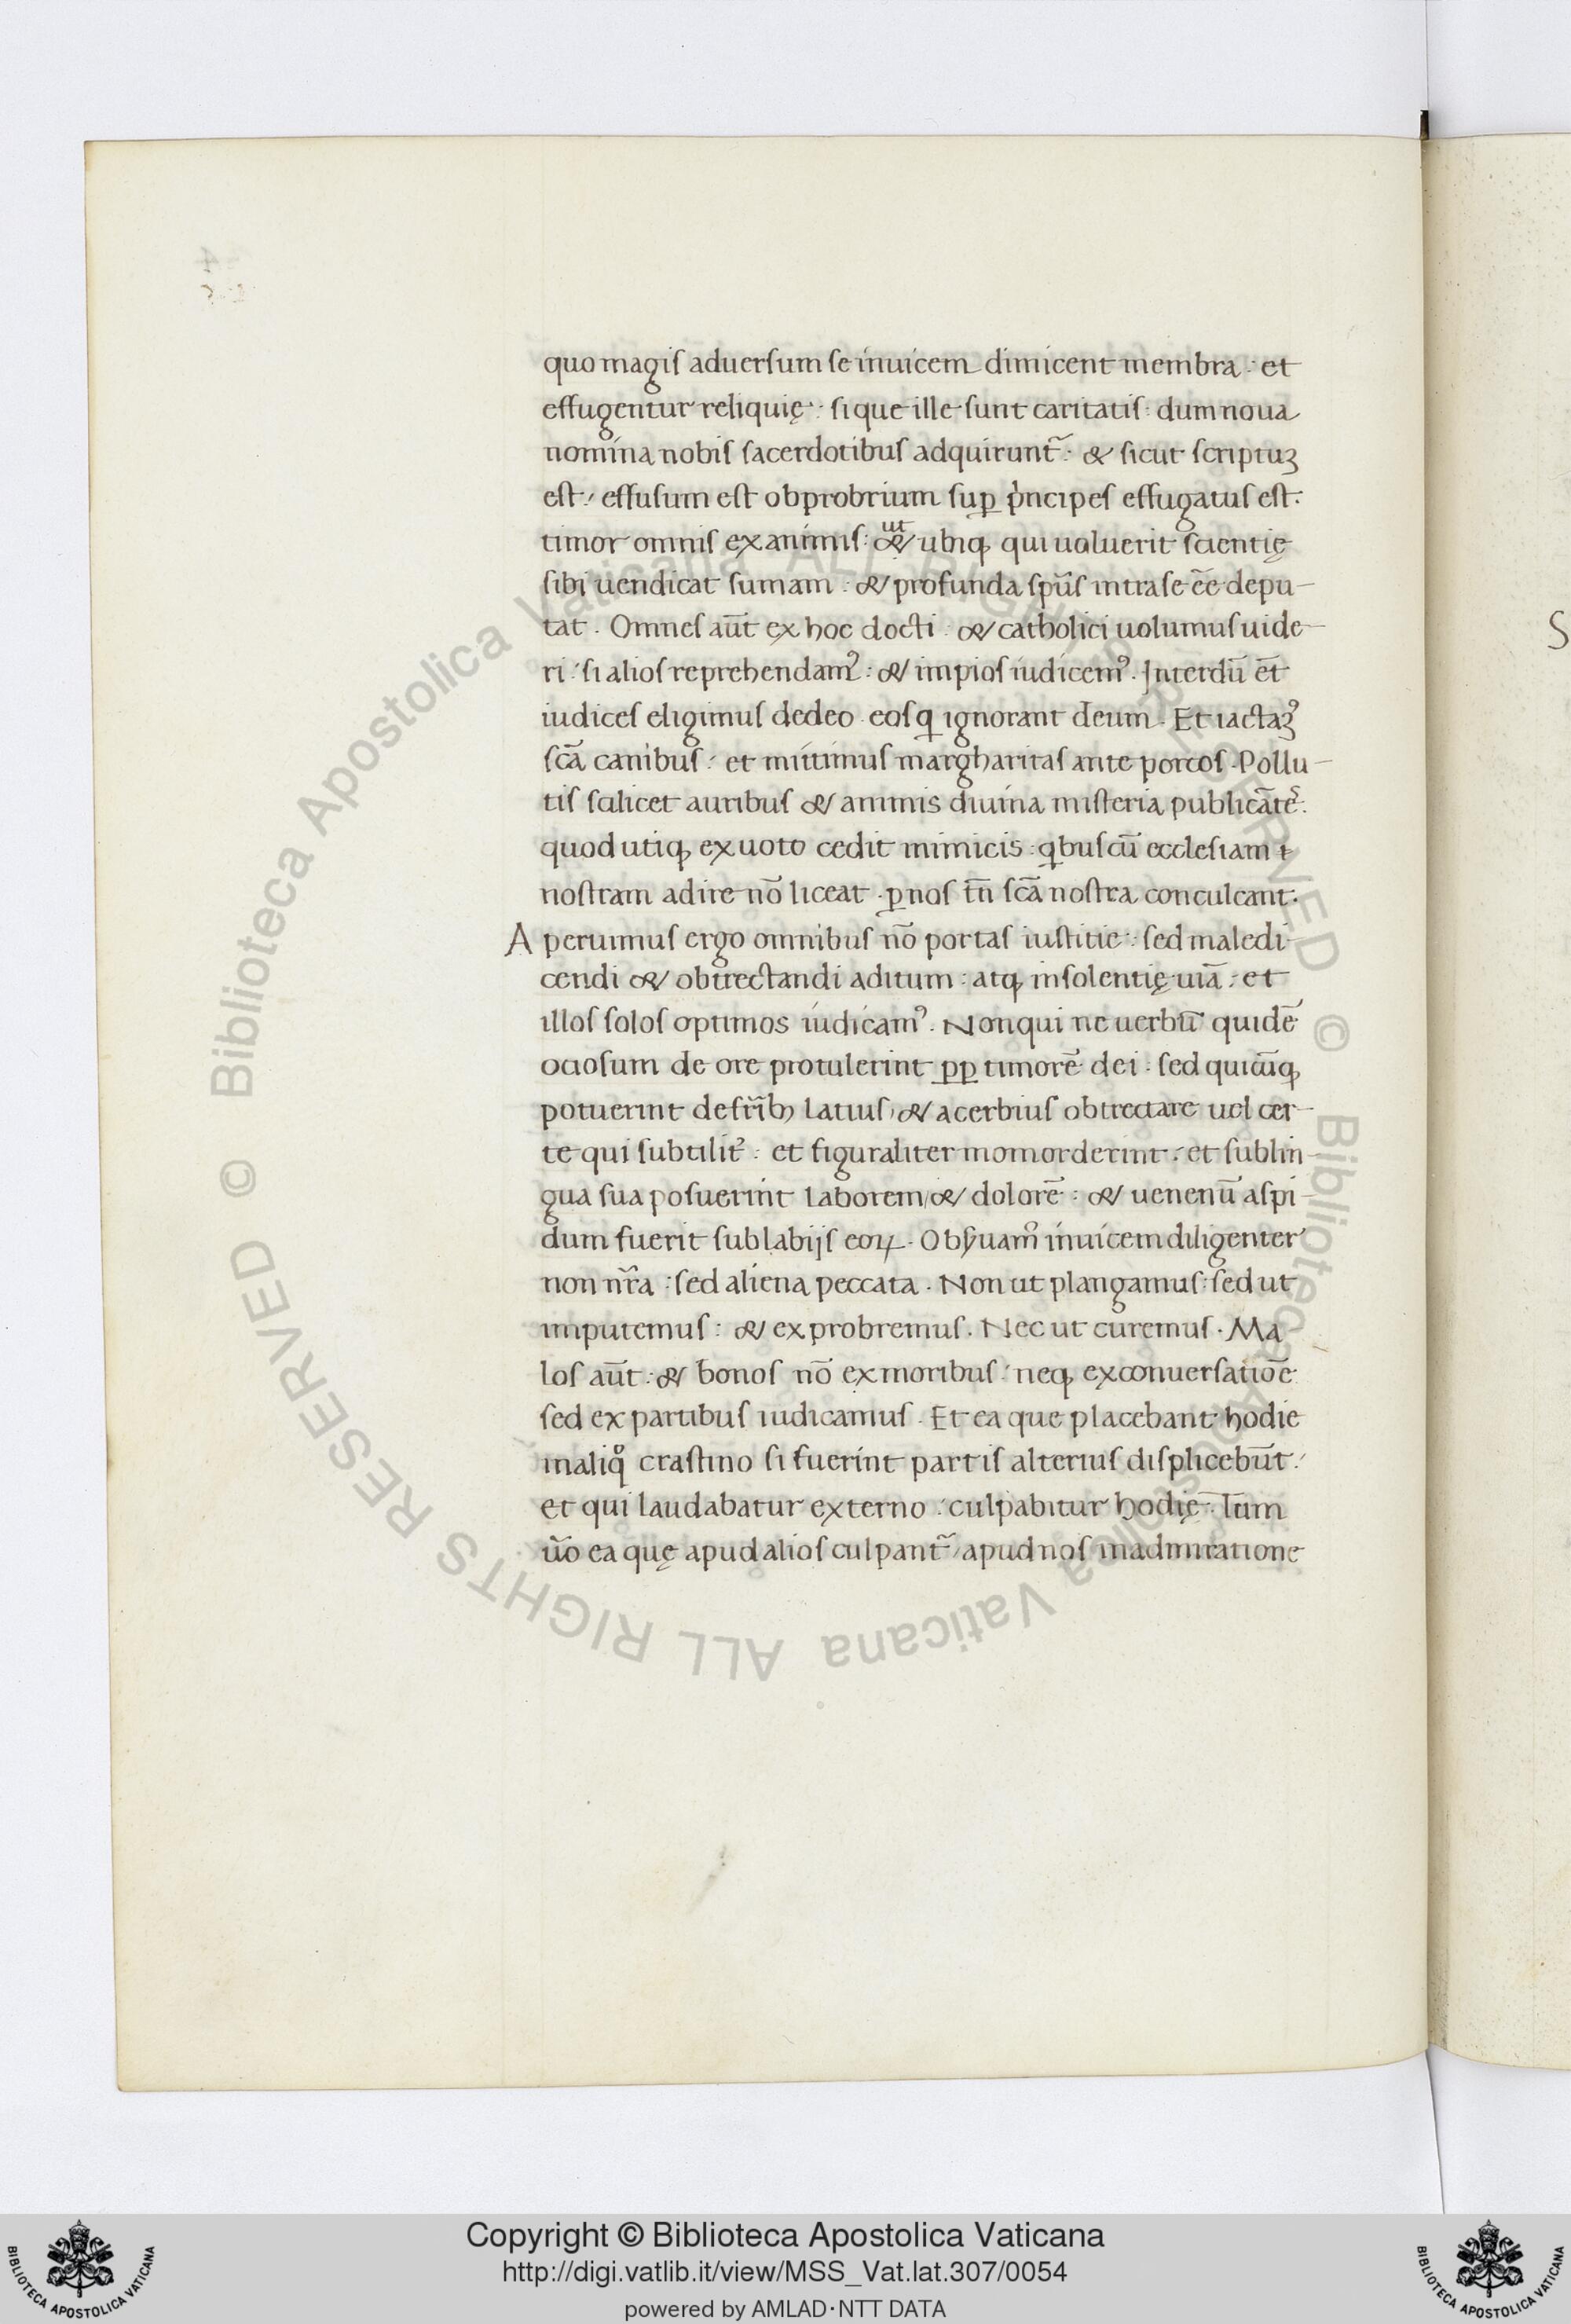 quo magis aduersum se inuicem dimicent membra : et
effugentur reliquię : si que ille sunt caritatis : dum noua
nomina nobis sacerdotibus adquirunt᷑ : & sicut scriptuꝫ
est : effusum est obprobrium suꝑ p̀ncipes effugatus est :
timor omnis ex animis : & ubiqꝫ qui uoluerit scientię
ut
sibi uendicat sumam : & profunda spūs intra se ēē depu-
tat . Omnes aūt ex hoc docti : & catholici uolumus uide-
ri : si alios reprehendamꝰ : & impios iudicemꝰ . Interdū ēt
iudices eligimus de deo eos ꝗ ignorant deum . Et iactaꝫꝰ
scā canibus : et mittimus margharitas ante porcos . Pollu-
tis scilicet auribus & animis diuina misteria publicātes :
quod utiqꝫ ex uoto cedit inimicis : ꝗbus cū ecclesiam
nostram adire nō liceat . ꝑ nos tn̄ scā nostra conculcant .
Aperuimus ergo omnibus nō portas iustitie : sed maledi-
cendi & obtrectandi aditum : atqꝫ insolentię uiā : et
illos solos optimos iudicamꝰ . Non qui ne uerbū quidē
ociosum de ore protulerint ꝑꝑ timorē dei : sed quicūqꝫ
potuerint de fr̄ibꝫ latius , & acerbius obtrectare uel cer-
te qui subtilit᷑ : et figuraliter momorderint : et sub lin-
gua sua posuerint laborem , & dolorē : & uenenū aspi-
dum fuerit sub labijs eoꝝ . Obs̄uamꝰ inuicem diligenter
non nr̄a : sed aliena peccata . Non ut plangamus : sed ut
imputemus : & exprobremus . Nec ut curemus . Ma
los aūt : & bonos nō ex moribus : neqꝫ ex conuersatiōe
sed ex partibus iudicamus . Et ea que placebant hodie
in aliqͦ crastino si fuerint partis alterius displicebūt :
et qui laudabatur externo : culpabitur hodię . Tum
ūo ea quę apud alios culpant᷑ , apud nos in admiratione
S
© Biblioteca Apostolica Vaticana ALL RIGHTS RESERVED © Biblioteca Apostolica Vaticana ALL RIGHTS RESERVED
BIBLIOTECA APOSTOLICA VATICANA
Copyright © Biblioteca Apostolica Vaticana
http://digi.vatlib.it/view/MSS_Vat.lat.307/0054
powered by AMLAD·NTT DATA
BIBLIOTECA APOSTOLICA VATICANA